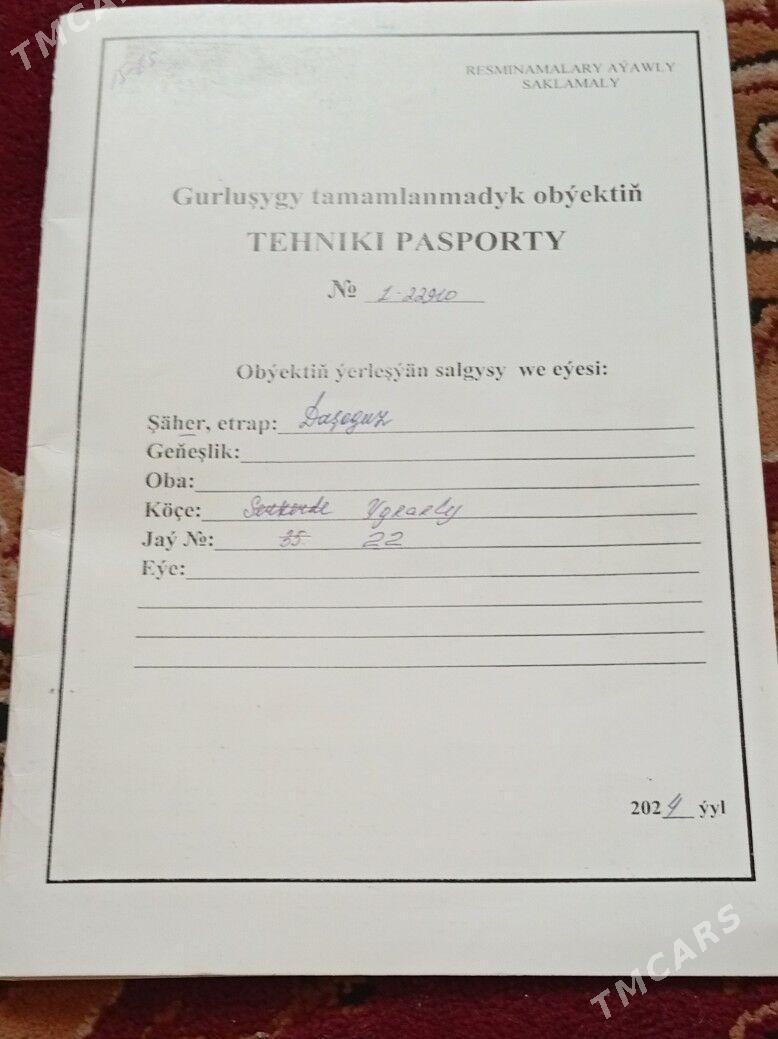 TMCARS
15-65
RESMINAMALARY AÝAWLY
SAKLAMALY
Gurluşygy tamamlanmadyk obýektiň
TEHNIKI PASPORTY
№ 1-22910
Obýektiň ýerleşýän salgysy we eýesi:
Şäher, etrap: Daşoguz
Geňeşlik:
Oba:
Köçe: Serkerde Ygrarly
Jaý №: 35 22
Eýe:
2024 ýyl
TMCARS